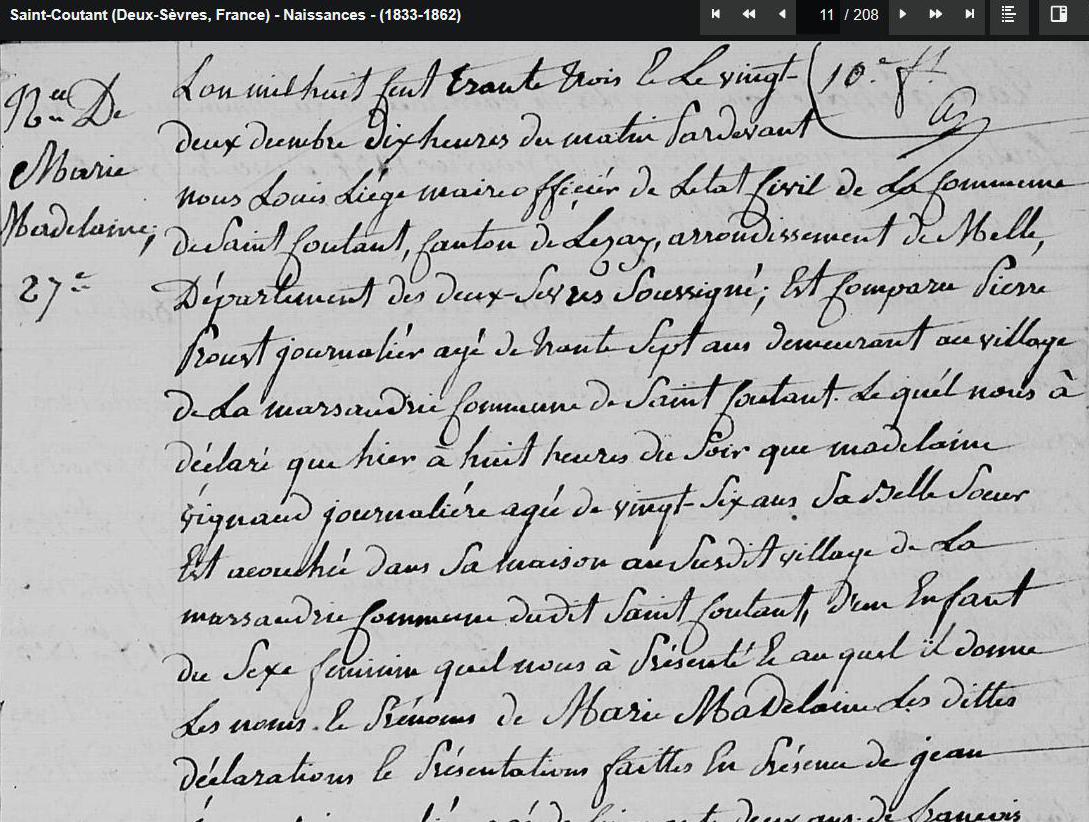 Saint-Coutant (Deux-Sèvres, France) - Naissances - (1833-1862)
11 / 208
De
Marie
Madelaine,
27e
L'an mil huit cent trante trois & Le vingt-
deux decembre dix heures du matin Pardevant
10e ft
nous Louis Liége maire officiér de Letat Civil de La Commune
de Saint Coutant, Canton de Lezay, arrondissement de Melle,
Département des deux-Sevres Soussigné; Est Comparu Pierre
Proust journaliér agé de trante Sept ans demeurant au village
de La marsaudrie Commune de Saint Coutant. Le quél nous à
déclaré que hier à huit heures du Soir que madelaine
vignaud journaliére agée de vingt-Six ans Sa Belle Soeur
Est acouchée dans Sa maison au Susdit village de La
marsaudrie Commune dudit Saint Coutant, d'un Enfant
du Sexe feminin quel nous à Présenté & au quel il donne
Les noms & Prénoms de Marie Madelaine Les dittes
déclarations & Présentations faittes En Présence de jean
deux ans de francois